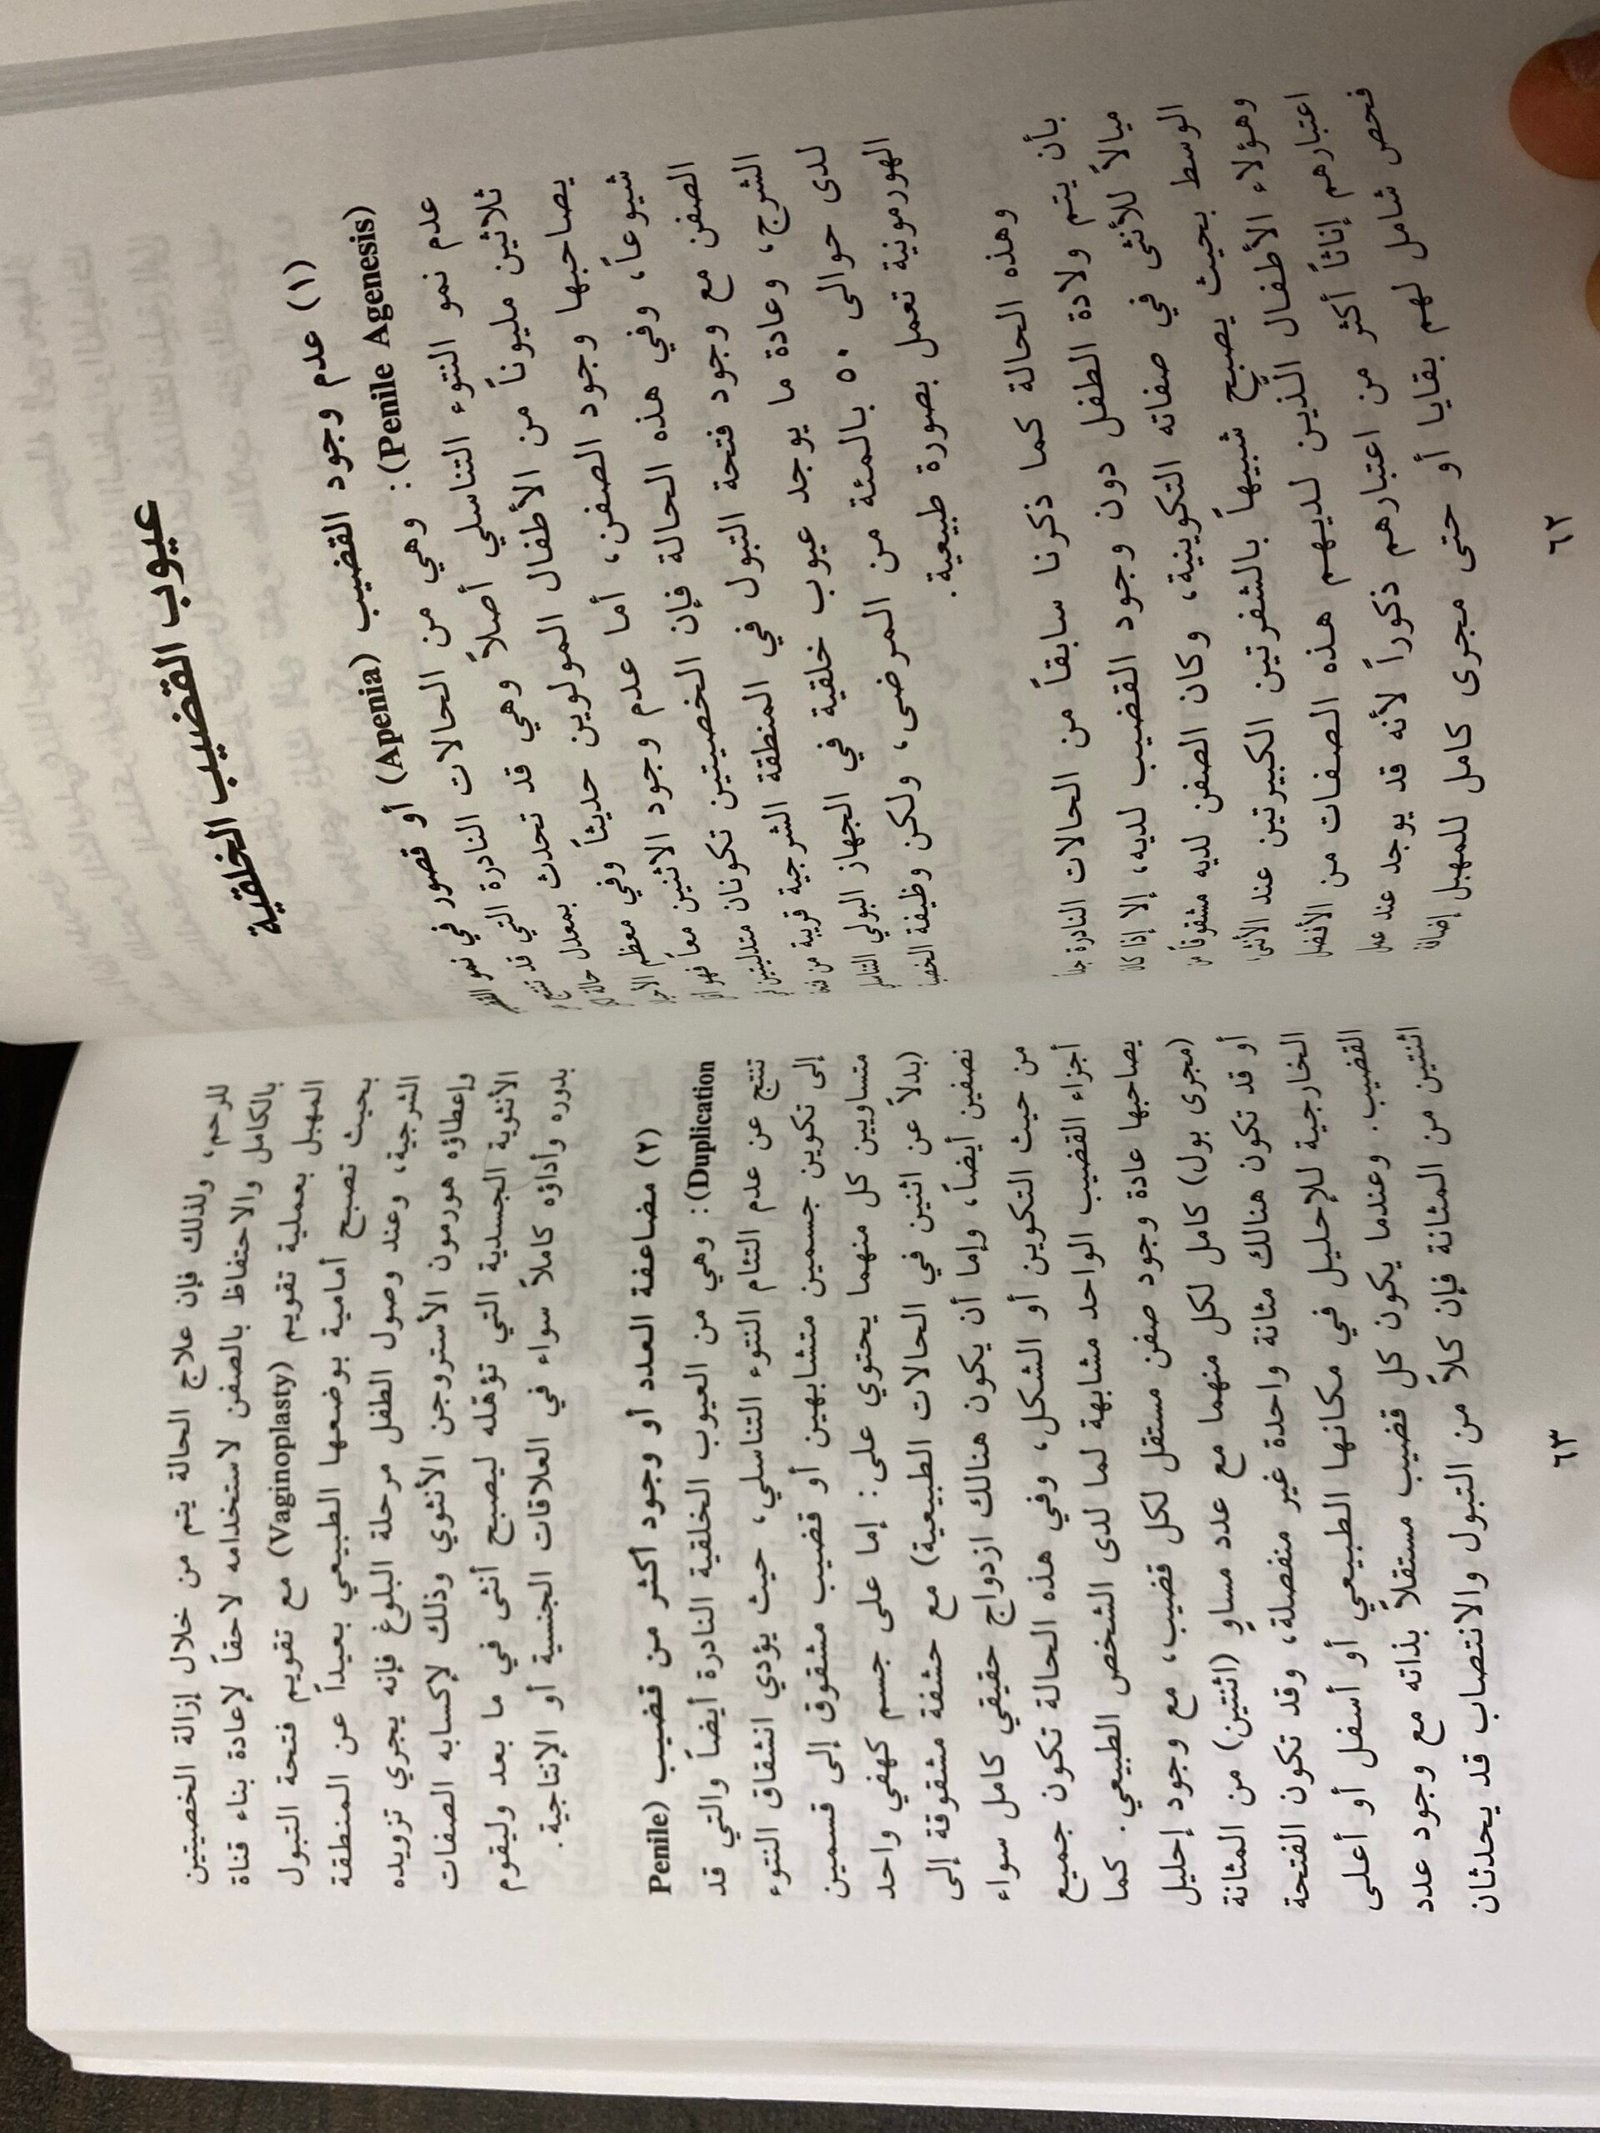 عيوب القضيب الخلقية
(١) عدم وجود القضيب (Apenia) أو قصور في نمو
(Penile Agenesis): وهي من الحالات النادرة التي قد تنتج
عدم نمو النتوء التناسلي أصلاً وهي قد تحدث بمعدل حالة
ثلاثين مليوناً من الأطفال المولوين حديثاً وفي معظم
يصاحبها وجود الصفن، أما عدم وجود الاثنين معاً فهو
شيوعاً، وفي هذه الحالة فإن الخصيتين تكونان متدليتين
الصفن مع وجود فتحة التبول في المنطقة الشرجية قريبة من
الشرج، وعادة ما يوجد عيوب خلقية في الجهاز البولي
لدى حوالى ٥٠ بالمئة من المرضى، ولكن وظيفة
الهورمونية تعمل بصورة طبيعية.
وهذه الحالة كما ذكرنا سابقاً من الحالات النادرة
بأن يتم ولادة الطفل دون وجود القضيب لديه، إلا إذا
ميالاً للأنثى في صفاته التكوينية، وكان الصفن لديه مشقوقاً
الوسط بحيث يصبح شبيهاً بالشفرتين الكبيرتين عند الأنثى
وهؤلاء الأطفال الذين لديهم هذه الصفات من الأفضل
اعتبارهم إناثاً أكثر من اعتبارهم ذكوراً لأنه قد يوجد عند
فحص شامل لهم بقايا أو حتى مجرى كامل للمهبل إضافة
٦٢
للرحم، ولذلك فإن علاج الحالة يتم من خلال إزالة الخصيتين
بالكامل والاحتفاظ بالصفن لاستخدامه لاحقاً لإعادة بناء قناة
المهبل بعملية تقويم (Vaginoplasty) مع تقويم فتحة التبول
بحيث تصبح أمامية بوضعها الطبيعي بعيداً عن المنطقة
الشرجية، وعند وصول الطفل مرحلة البلوغ فإنه يجري تزويده
وإعطاؤه هورمون الأستروجن الأنثوي وذلك لإكسابه الصفات
الأنثوية الجسدية التي تؤهله ليصبح أنثى في ما بعد وليقوم
بدوره وأداؤه كاملاً سواء في العلاقات الجنسية أو الإنتاجية.
(٢) مضاعفة العدد أو وجود أكثر من قضيب (Penile
Duplication): وهي من العيوب الخلقية النادرة أيضاً والتي قد
تنتج عن عدم التئام النتوء التناسلي، حيث يؤدي انشقاق النتوء
إلى تكوين جسمين متشابهين أو قضيب مشقوق إلى قسمين
متساويين كل منهما يحتوي على: إما على جسم كهفي واحد
(بدلاً عن اثنين في الحالات الطبيعية) مع حشفة مشقوقة إلى
نصفين أيضاً، وإما أن يكون هنالك ازدواج حقيقي كامل سواء
من حيث التكوين أو الشكل، وفي هذه الحالة تكون جميع
أجزاء القضيب الواحد مشابهة لما لدى الشخص الطبيعي. كما
يصاحبها عادة وجود صفن مستقل لكل قضيب، مع وجود إحليل
(مجرى بول) كامل لكل منهما مع عدد مساوٍ (اثنتين) من المثانة
أو قد تكون هنالك مثانة واحدة غير منفصلة، وقد تكون الفتحة
الخارجية للإحليل في مكانها الطبيعي أو أسفل أو أعلى
القضيب. وعندما يكون كل قضيب مستقلاً بذاته مع وجود عدد
اثنتين من المثانة فإن كلاً من التبول والانتصاب قد يحدثان
٦٣